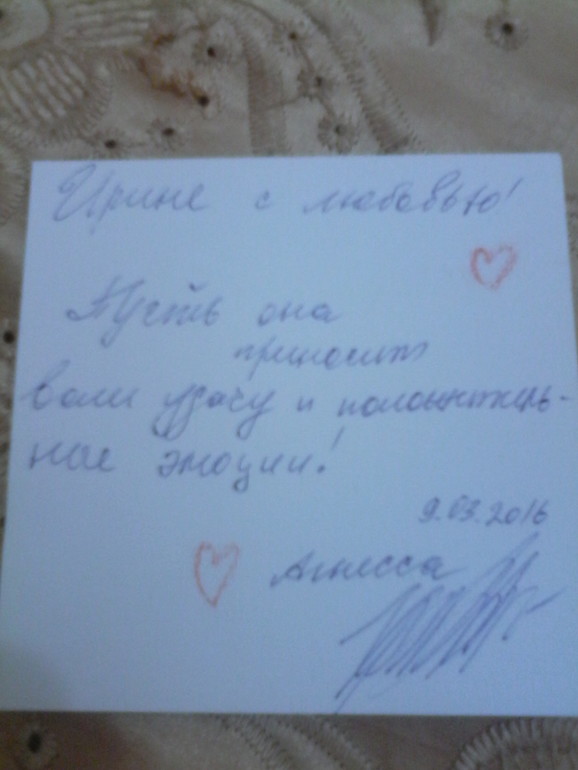 Ирине с любовью!
Пусть она
приносит
вам удачу и положитель-
ные эмоции!
9.03.2016
Агнесса